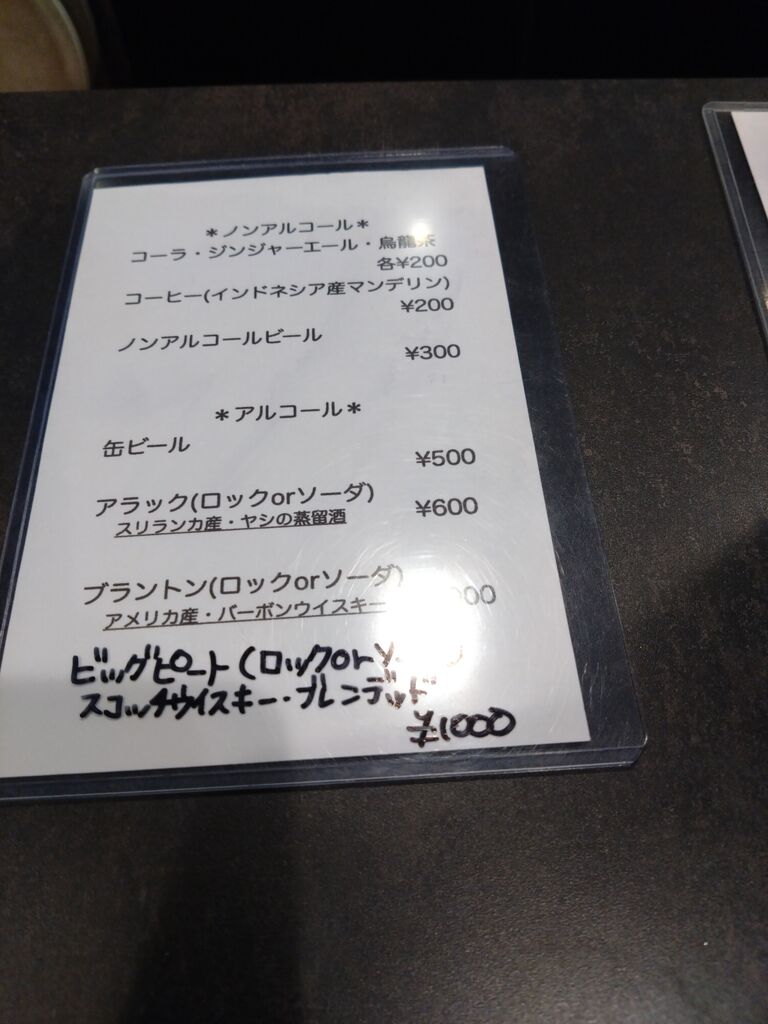 ＊ノンアルコール＊
コーラ・ジンジャーエール・烏龍茶
各¥200
コーヒー(インドネシア産マンデリン)
¥200
ノンアルコールビール
¥300
＊アルコール＊
缶ビール
¥500
アラック(ロックorソーダ)
¥600
スリランカ産・ヤシの蒸留酒
ブラントン(ロックorソーダ)
アメリカ産・バーボンウイスキー
ビッグピート(ロックor
スコッチウイスキー・ブレンデッド
¥1000